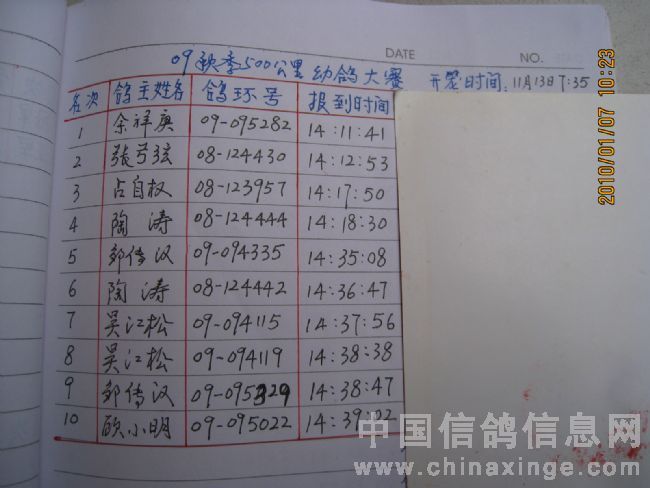 DATE NO.
09秋季500公里幼鸽大赛 开笼时间:11月13日7:35
名次 鸽主姓名 鸽环号 报到时间
1 余祥庚 09-095282 14:11:41
2 張弓弦 08-124430 14:12:53
3 占自权 08-123957 14:17:50
4 陶涛 08-124444 14:18:30
5 邹传汉 09-094335 14:35:08
6 陶涛 08-124442 14:36:47
7 吴江松 09-094115 14:37:56
8 吴江松 09-094119 14:38:38
9 邹传汉 09-095329 14:38:47
10 顾小明 09-095022 14:39:02
2010/01/07 10:23
中国信鸽信息网
www.chinaxinge.com